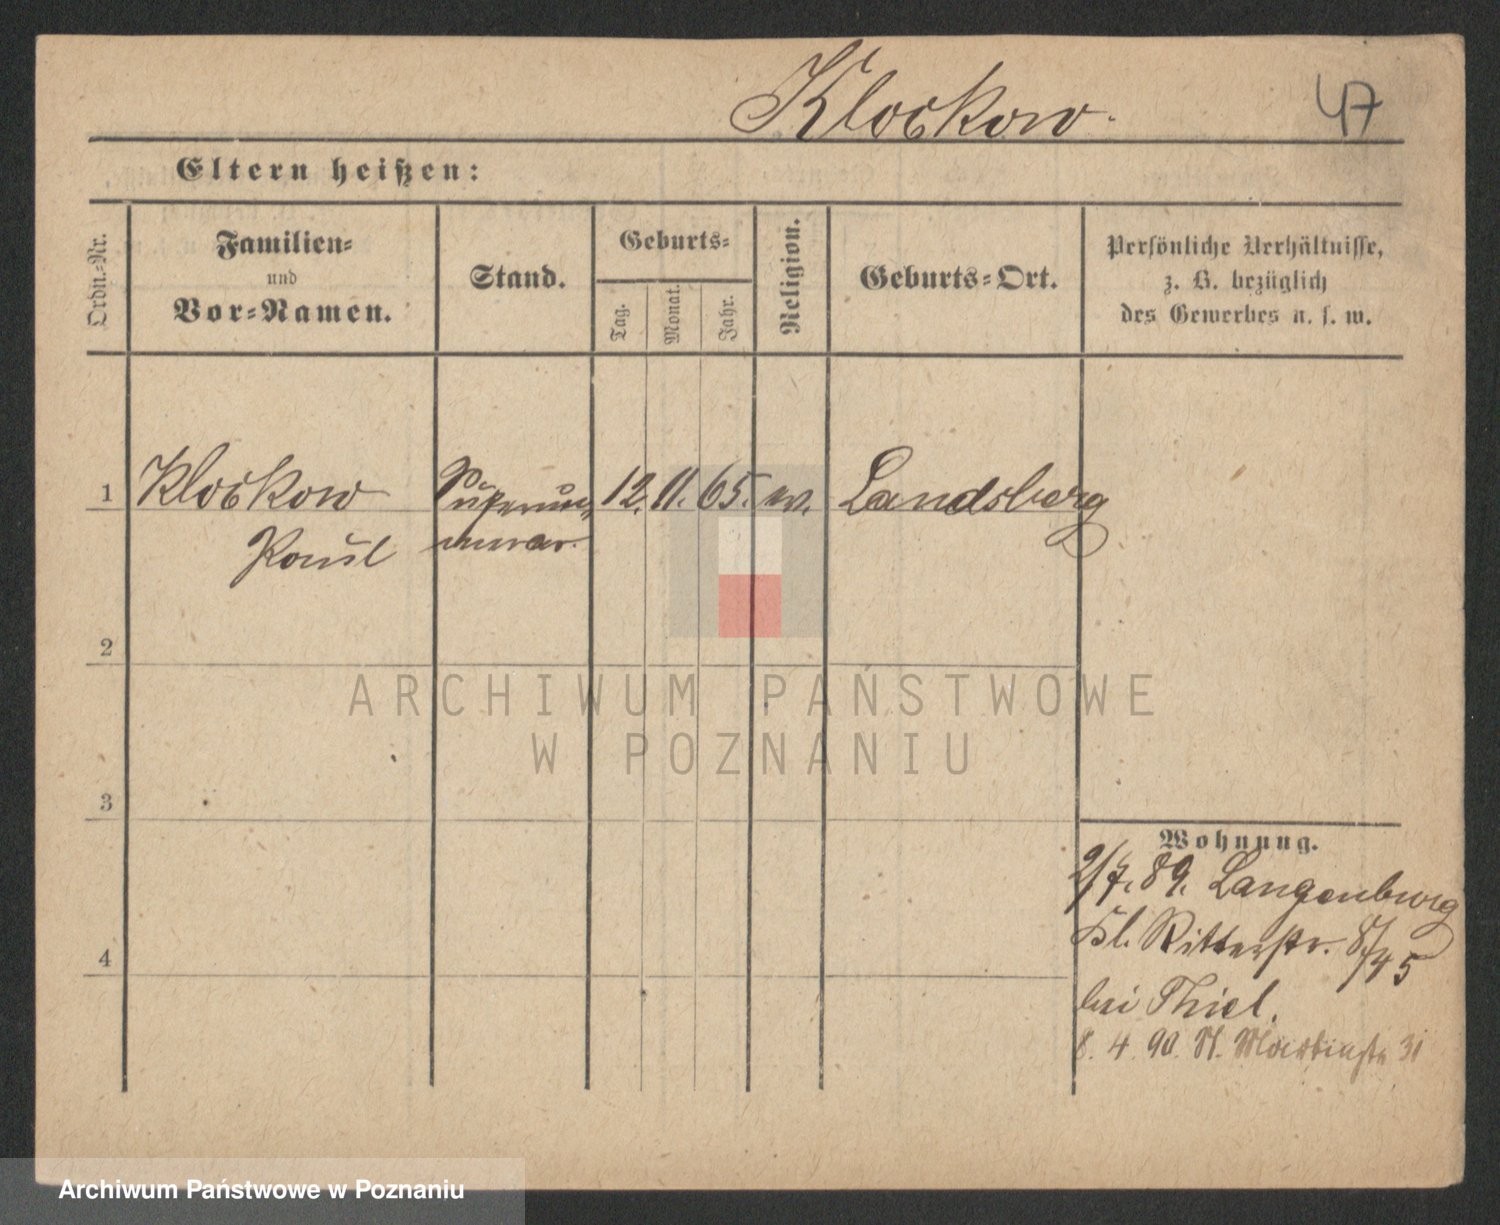 Klockow.
47
Eltern heißen:
Ordn.=Nr.
Familien=
und
Vor=Namen.
Stand.
Geburts=
Tag.
Monat.
Jahr.
Religion.
Geburts=Ort.
Persönliche Verhältnisse,
z. B. bezüglich
des Gewerbes u. s. w.
1 Klockow Supernu= 12. 11. 65. ev. Landsberg
Paul merar.
2
ARCHIWUM PAŃSTWOWE
W POZNANIU
3
Wohnung.
2/7. 89. Langenburg
Kl. Ritterstr. 8/45
4
bei Thiel.
8. 4. 90. St. Martinstr 31
Archiwum Państwowe w Poznaniu